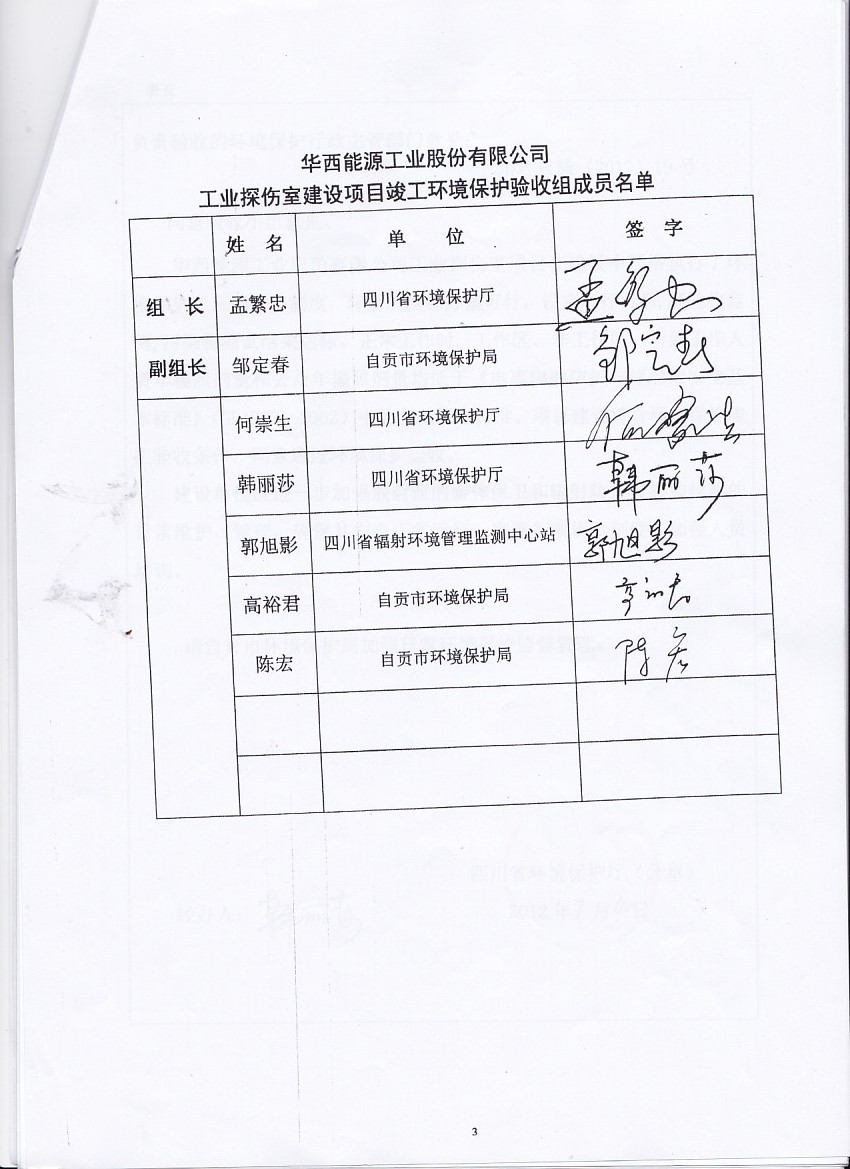 华西能源工业股份有限公司
工业探伤室建设项目竣工环境保护验收组成员名单
姓 名 单 位 签 字
组 长 孟繁忠 四川省环境保护厅 孟繁忠
副组长 邹定春 自贡市环境保护局 邹定春
何崇生 四川省环境保护厅
韩丽莎 四川省环境保护厅 韩丽莎
郭旭影 四川省辐射环境管理监测中心站 郭旭影
高裕君 自贡市环境保护局
陈宏 自贡市环境保护局 陈宏
3